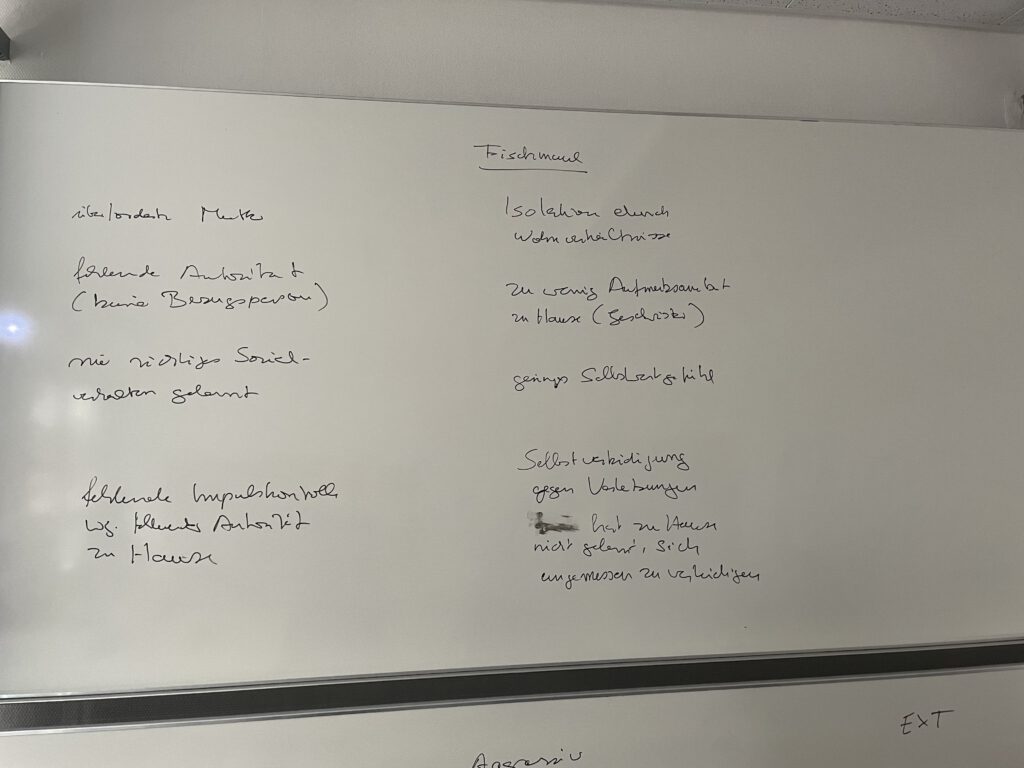 Fischmaul
überforderte Mutter
fehlende Autorität
(keine Bezugsperson)
nie richtiges Sozial-
verhalten gelernt
fehlende Impulskontrolle
wg. fehlender Autorität
zu Hause
Isolation durch
Wohnverhältnisse
zu wenig Aufmerksamkeit
zu Hause (Geschwister)
geringes Selbstwertgefühl
Selbstverteidigung
gegen Verletzungen
hat zu Hause
nicht gelernt, sich
angemessen zu verteidigen
EXT
Aggressiv